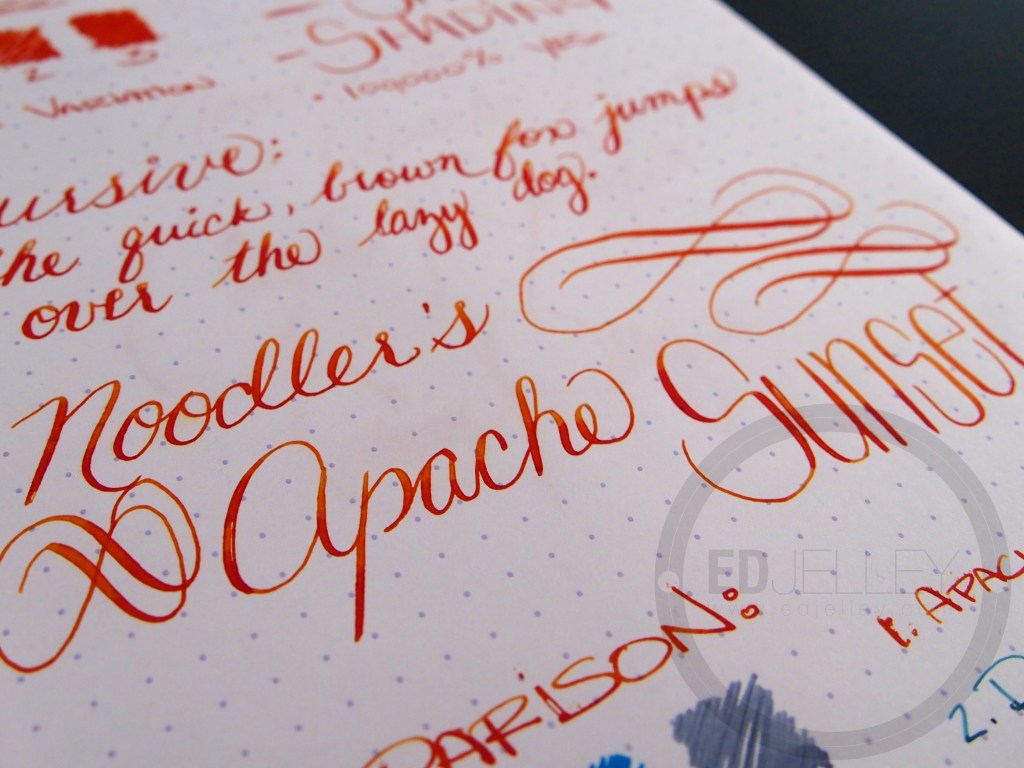 2 3
SHADING
VARIATION
• 100000% YES
ursive:
he quick, brown fox jumps
over the lazy dog.
Noodler's
Apache Sunset
EDJELLEY
edjelley.co
PARISON:
1. APAC
2. D